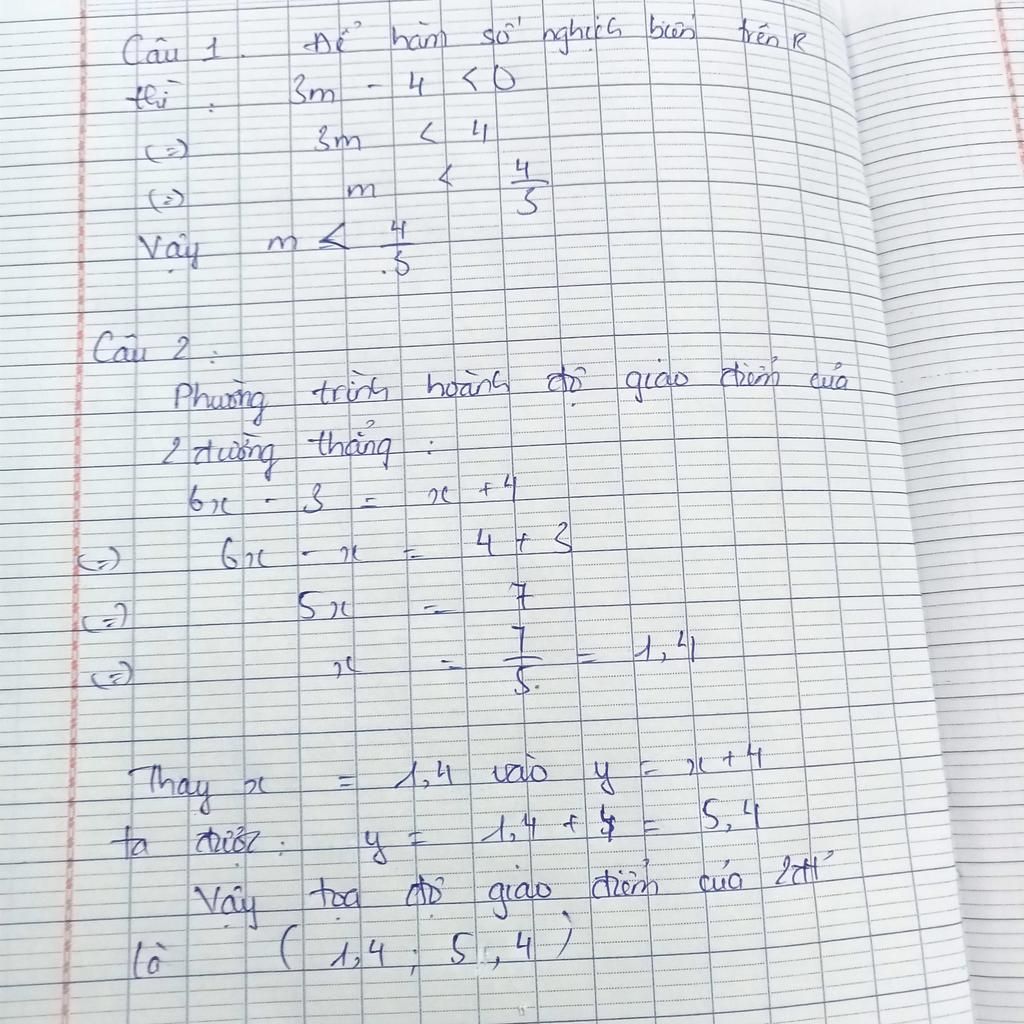 Câu 1. Để hàm số nghịch biến trên R
thì: 3m - 4 < 0
(=) 3m < 4
(=) m < 4/3
Vậy m < 4/3
Câu 2:
Phương trình hoành độ giao điểm của
2 đường thẳng:
6x - 3 = x + 4
(=) 6x - x = 4 + 3
(=) 5x = 7
(=) x = 7/5 = 1,4
Thay x = 1,4 vào y = x + 4
ta được: y = 1,4 + 4 = 5,4
Vậy tọa độ giao điểm của 2đt
là (1,4; 5,4)